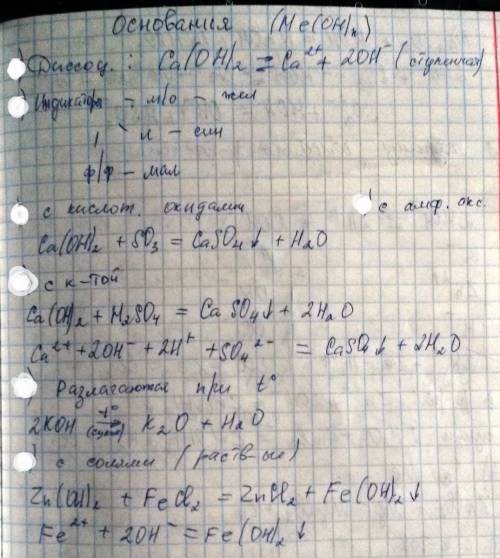 Основания (Me(OH)ₙ)
Диссоц.: Ca(OH)₂ = Ca²⁺ + 2OH⁻ (ступенчая)
Индикаторы – м/о – жел
л – син
ф/ф – мал
с кислот. оксидами с амф. окс.
Ca(OH)₂ + SO₃ = CaSO₄↓ + H₂O
с к-той
Ca(OH)₂ + H₂SO₄ = CaSO₄↓ + 2H₂O
Ca²⁺ + 2OH⁻ + 2H⁺ + SO₄²⁻ = CaSO₄↓ + 2H₂O
Разлагаются при t°
2KOH t° K₂O + H₂O
с солями (раств-ые)
Zn(OH)₂ + FeCl₂ = ZnCl₂ + Fe(OH)₂↓
Fe²⁺ + 2OH⁻ = Fe(OH)₂↓